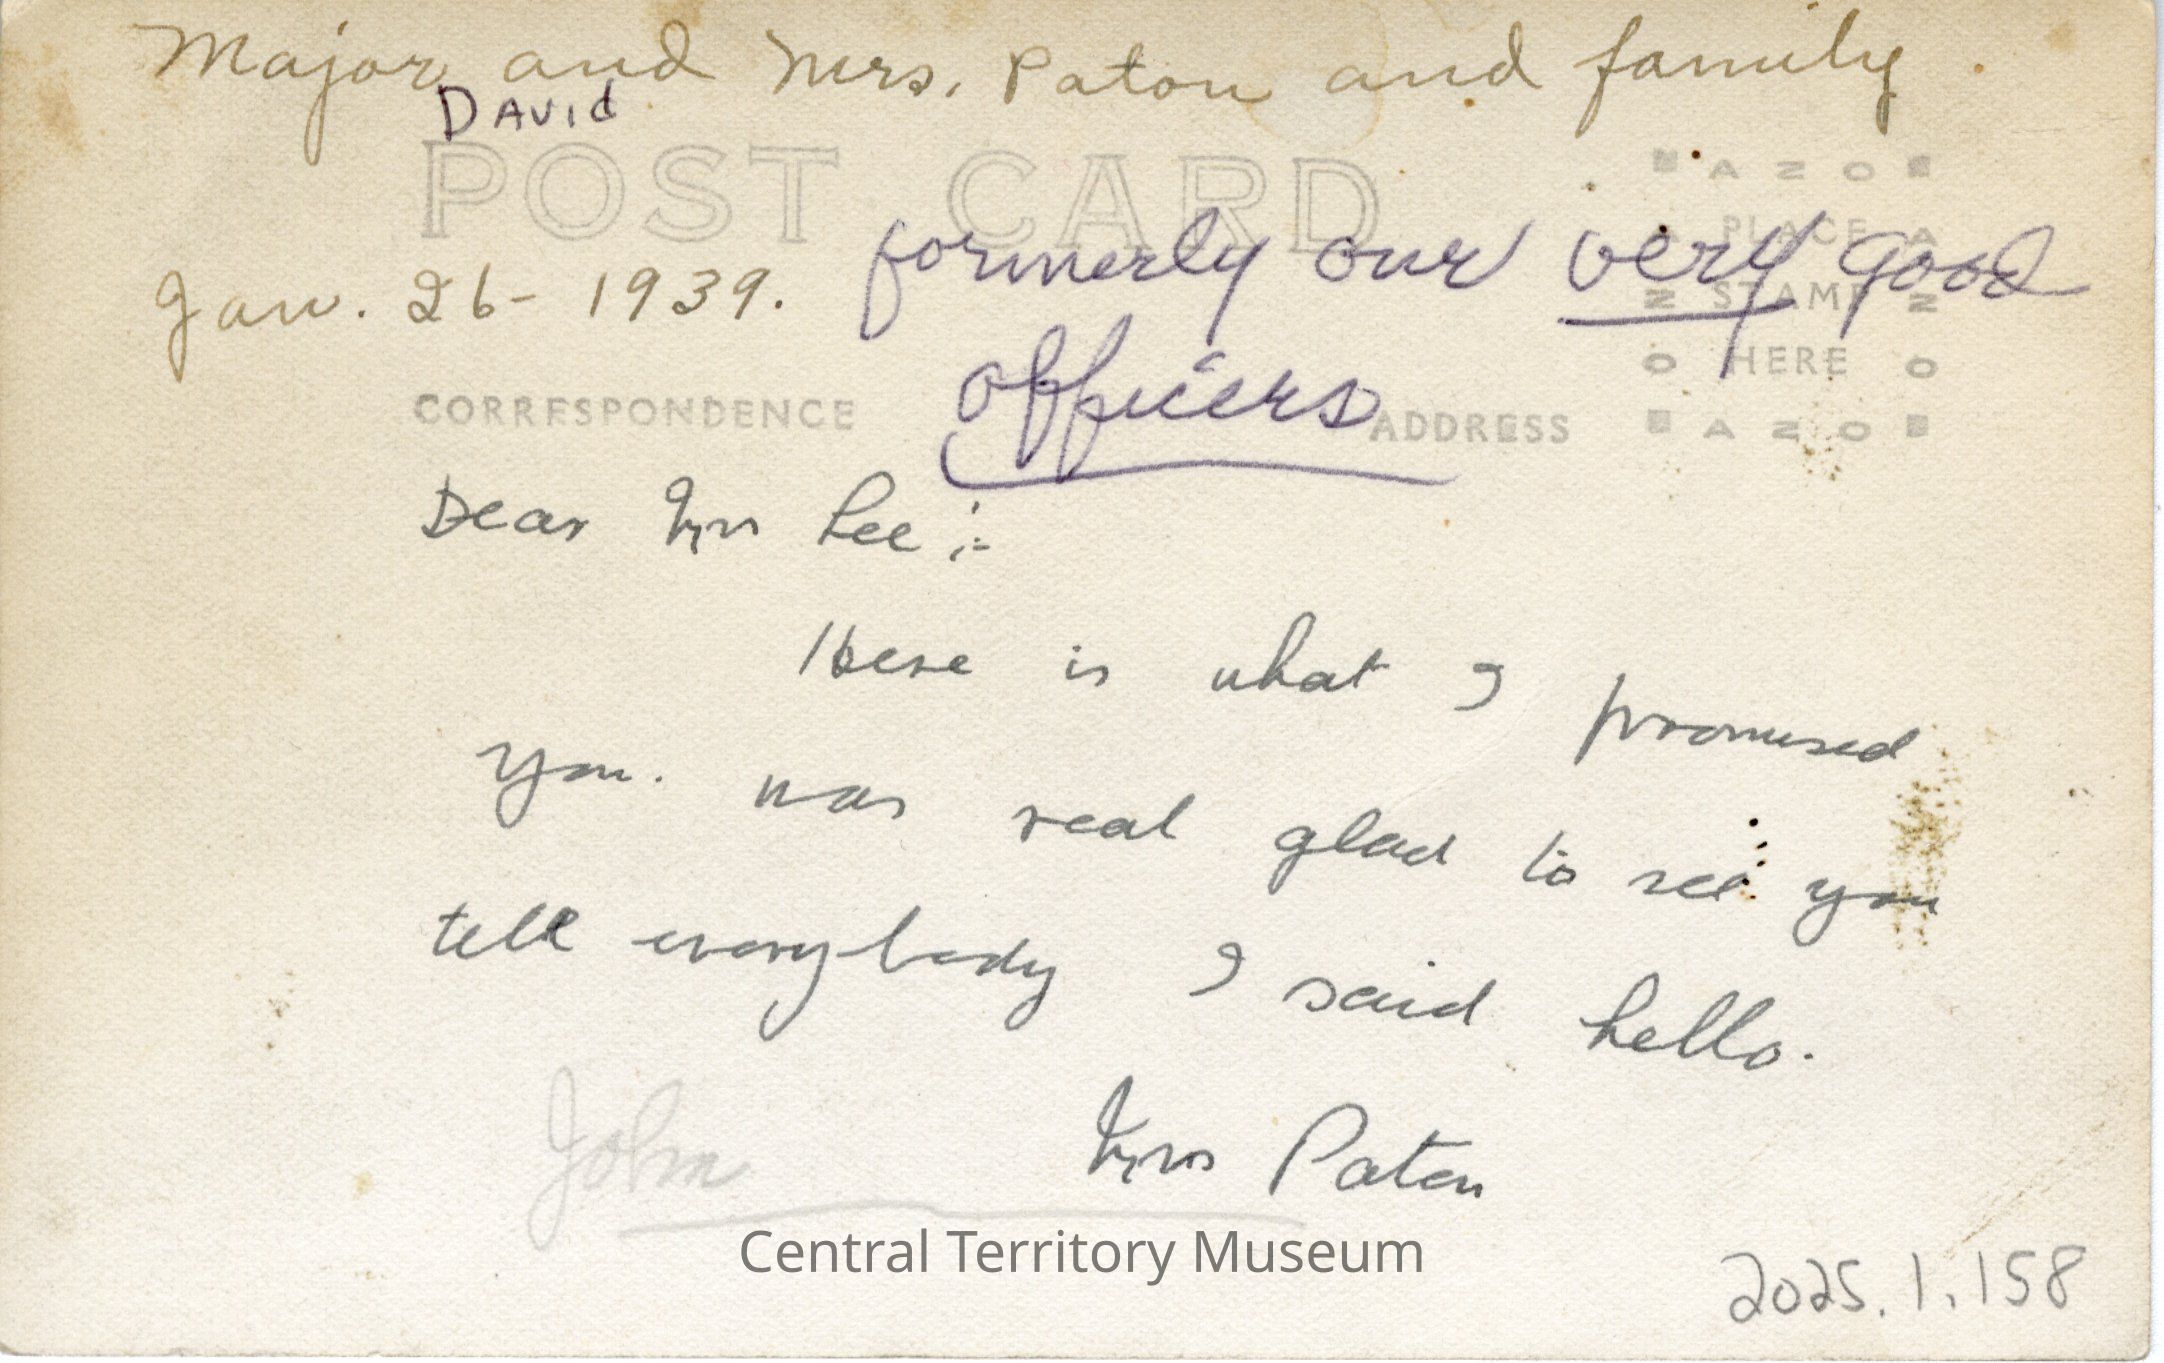 Major and Mrs. Paton and family.
David
POST CARD
AZO
PLACE
STAMP
HERE
AZO
Jan. 26 - 1939.
formerly our very good
officers
CORRESPONDENCE
ADDRESS
Dear Mrs Lee :-
Here is what I promised
you. was real glad to see you
tell everybody I said hello.
Mrs Paton
John
Central Territory Museum
2025.1.158